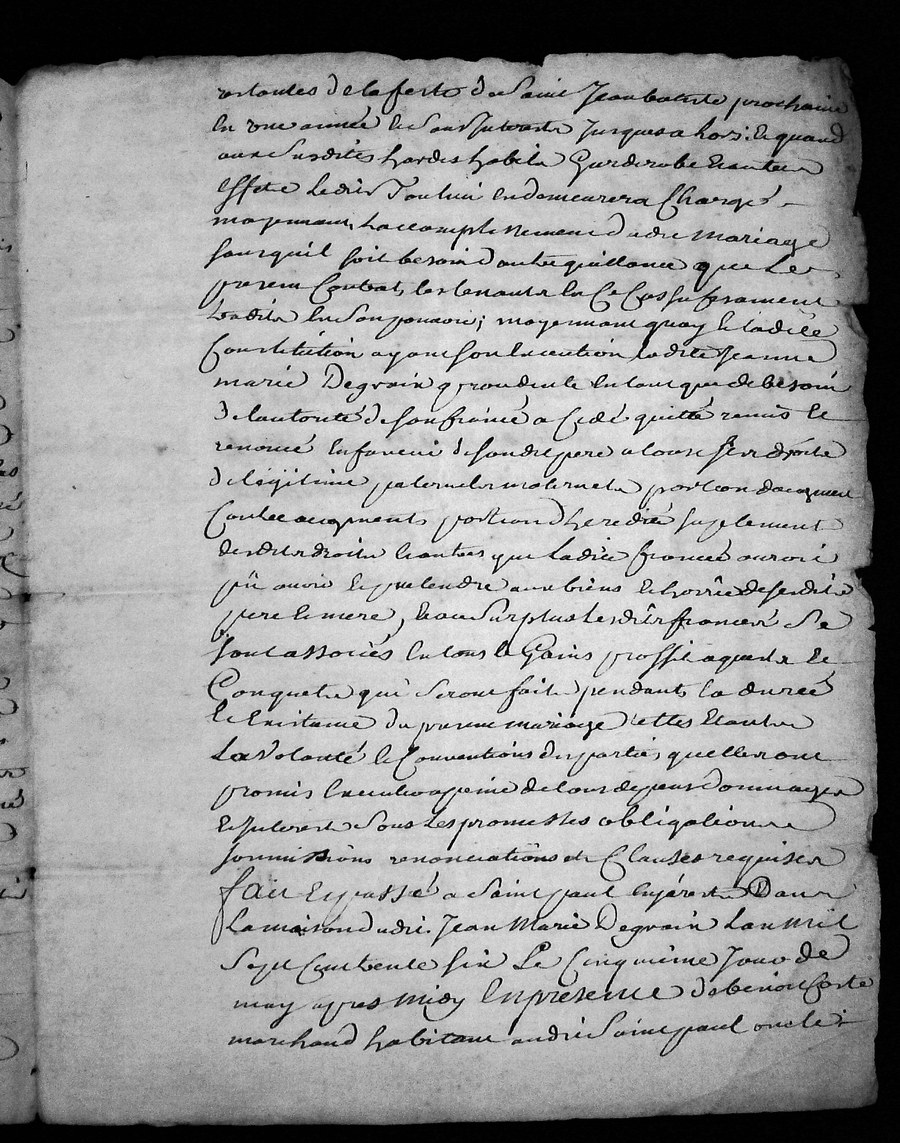 restantes de la feste de Saint Jean batiste prochaine
en une année et sans interests jusques a lors: et quand
aux susdites hardes habits Garderobe et autres
effets ledit Toulieu en demeurera Chargé
moyennant laccomplissement dudit mariage
sans quil soit besoin dautre quittance que le
present Contrat, les tenants en ce cas
en son pouvoir; moyennant quoy et ladite
Constitution ayant son execution ladite Jeanne
marie Degrain en tant que de besoin
de lautorité de son fiancé a cedé quitté remis et
renoncé en faveur de sondit pere a tous ses droits
de légitime paternels maternels portion daugment
Contre augments portion dheredie suplement
desdits droits et autres que ladite fiancée auroit
pû avoir et pretendre aux biens et hoirie de sesdits
pere et mere, et au surplus lesdits fiancés se
sont associés en tous les Gains proffit aquets et
Conquets qui seront faits pendant la durée
et Existance du present mariage telles etants
La Volonté et Conventions des parties quelles ont
promis executer a peine de tous depens dommages
et interests sous les promesses obligations
soumissions renonciations et Clauses requises
fait et passé a Saint paul en Jarests Dans
La maison dudit Jean Marie Degrain Lan mil
Sept Cent trente six Le Cinquieme Jour de
may apres midy en presence de benoit Coste
marchand habitant audit Saint paul oncle